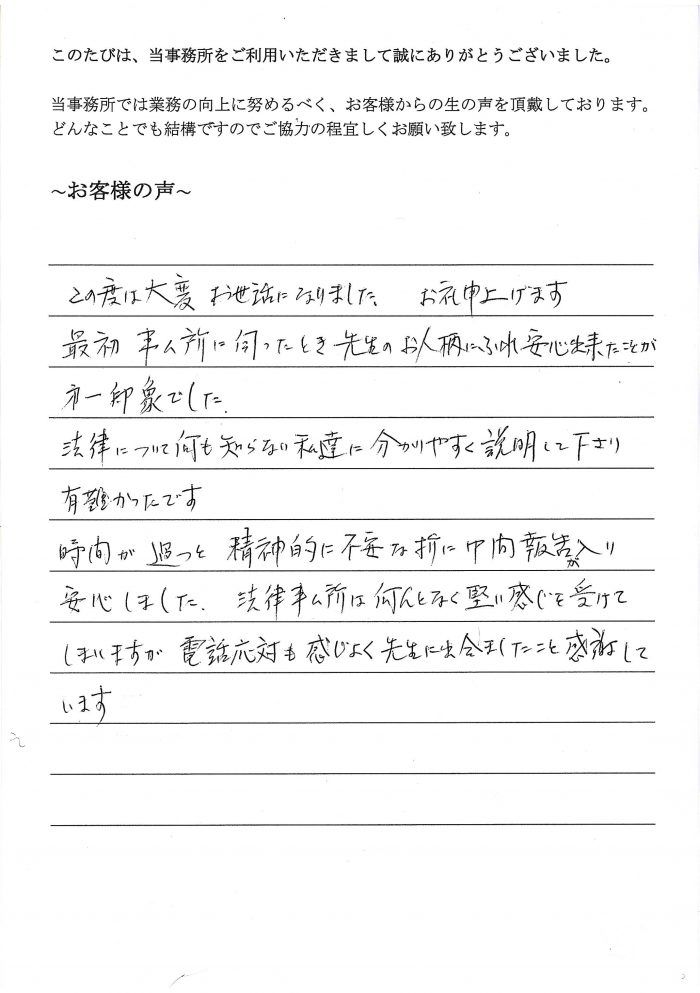 このたびは、当事務所をご利用いただきまして誠にありがとうございました。
当事務所では業務の向上に努めるべく、お客様からの生の声を頂戴しております。
どんなことでも結構ですのでご協力の程宜しくお願い致します。
～お客様の声～
この度は大変お世話になりました。 お礼申上げます
最初 事ム所に伺ったとき先生のお人柄にふれ安心出来たことが
才一印象でした。
法律について何も知らない私達に分かりやすく説明して下さり
有難かったです
時間が過つと 精神的に不安な折に中間報告が入り
安心しました。 法律事ム所は何んとなく堅い感じを受けて
しまいますが 電話応対も感じよく先生に出会ましたこと感謝して
います